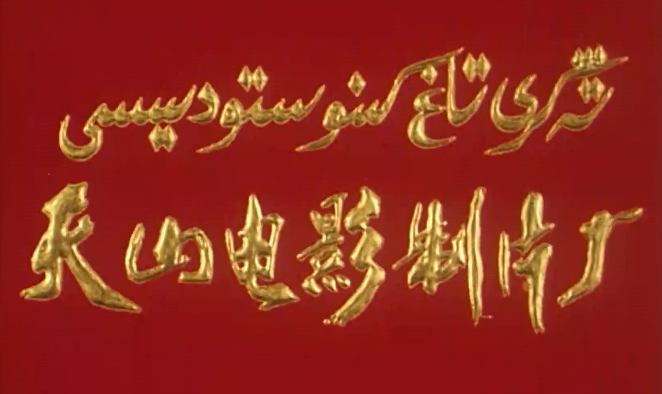 تەڭرى تاغ كىنو ستۇدىيىسى
天山电影制片厂